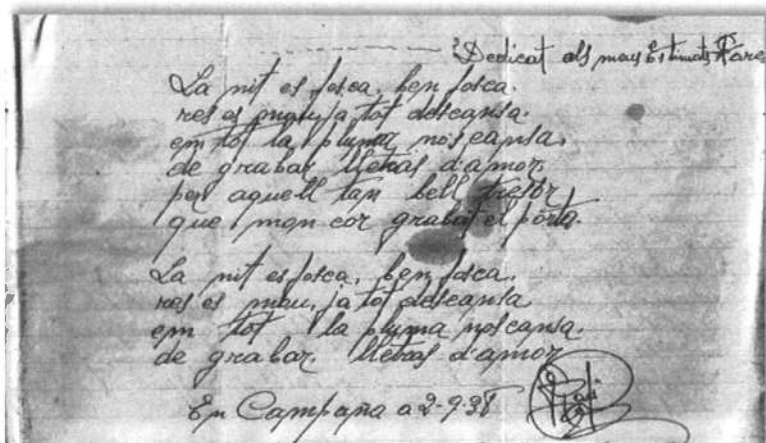 Dedicat als meus Estimats Pare
La nit es fosca, ben fosca.
res es mou, ja tot descansa.
em tot la pluma nos cansa.
de grabar lletras d'amor.
per aquell tan bell tresor
que mon cor grabat el porta.
La nit es fosca, ben fosca.
res es mou, ja tot descansa
em tot la pluma nos cansa.
de grabar. lletras d'amor
En Campaña a 2-9-38